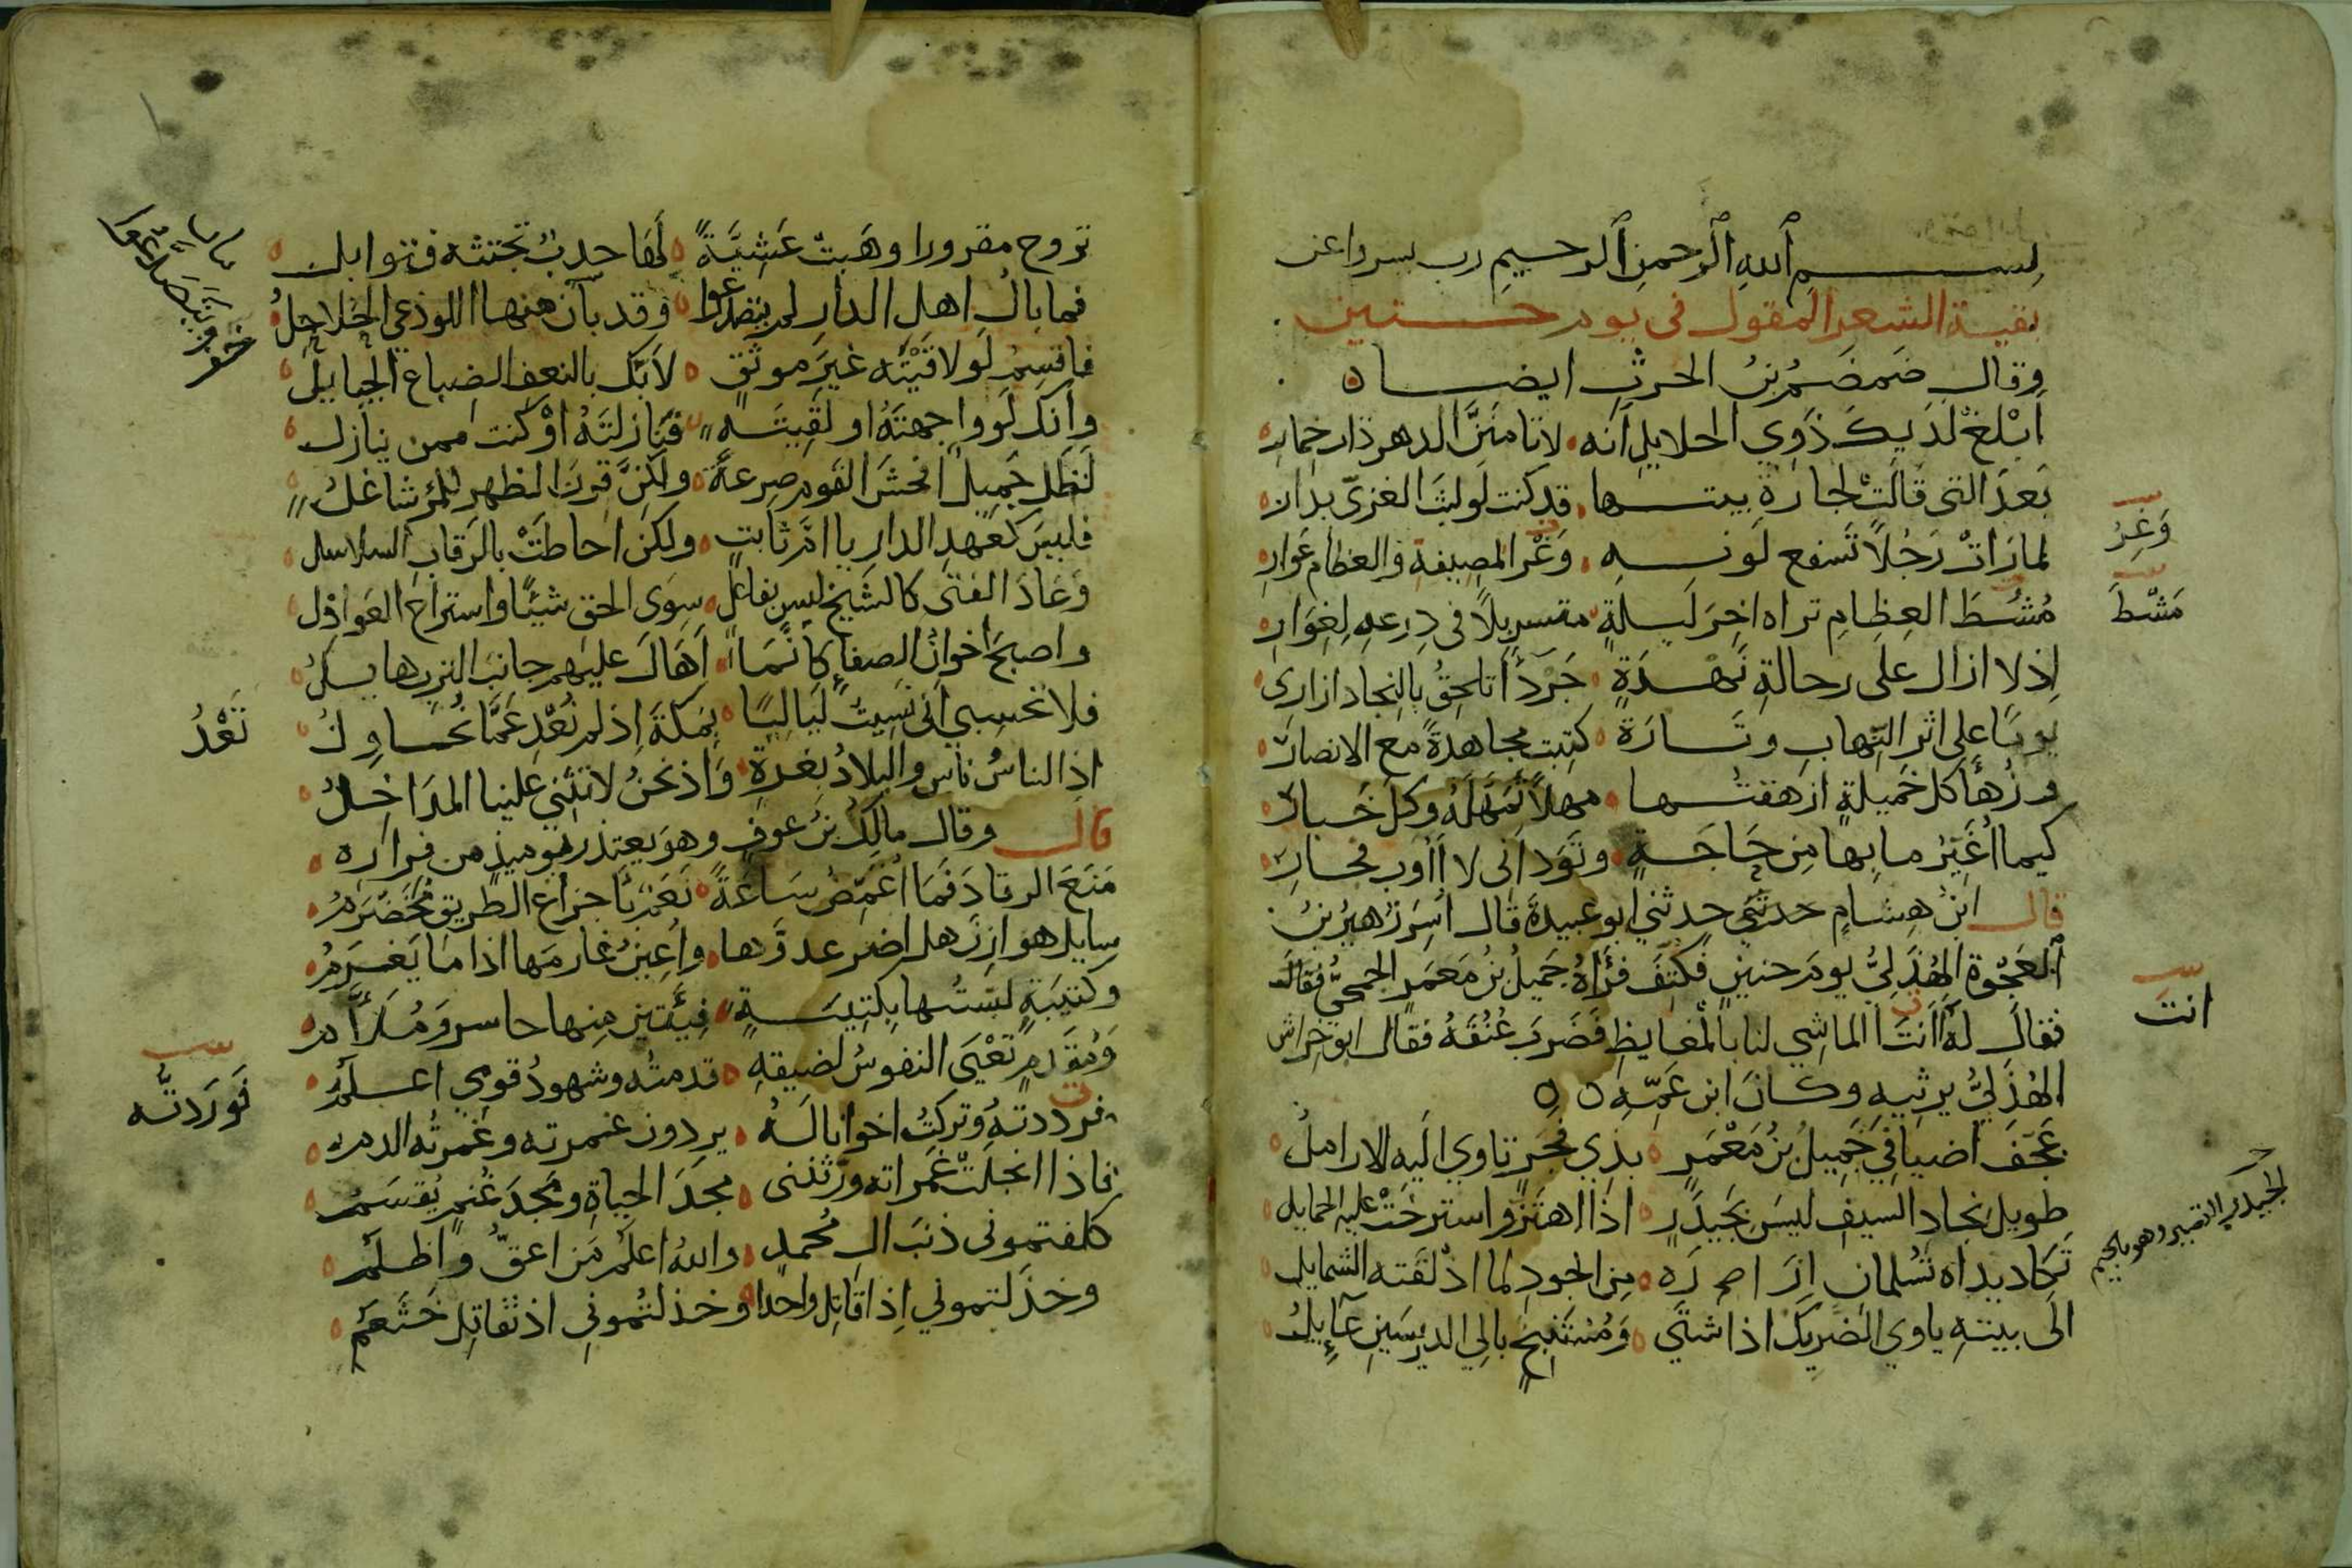 بسم الله الرحمن الرحيم رب يسر واعن
بقية الشعر المقول في يوم حنين
وقال ضمضم بن الحرث ايضا ه
أَبْلِغْ لَدَيكَ ذَوِي الحلايلِ أنه ۰ لا تامننَّ الدهر ذات خمار
بَعدَ التي قَالَتْ لجارةِ بيتها ۰ قد كنت لو لبث الغزيّ بدار
لما رَاتْ رَجُلًا تَسفع لونه ۰ وَغْر المصيفة والعظام عوار
وَغِرُ
مُشُطَ العِظَامِ تراه اخِرَ ليلةٍ ۰ متسربِلًا في دِرعهِ لِغِوَارِ
مَشّطَ
اِذ لا ازال على رحالةِ نَهْدَةٍ ۰ جَرْدَأ تلحِقُ بالنجاد ازارى
يومًا على اثر النِّهاب وتَارَة ۰ كتبت مجاهدةً مع الانصار
وزُهأ كل خَميلةٍ ازهقتها ۰ مهلًا تَمَهَّلَهُ وكل خَبار
كيما أُغَيِّرَ ما بِها مِن حَاجَةٍ ۰ وتَوَد أنى لا أَؤوب فجار
قال ابن هِشامٍ حدثني ابو عبيدة قال اُسِرَ زُهيرُ بنُ
العَجْوَة الهُذَلِيُّ يومَ حنينٍ فكُتِفَ فَرَأهُ جَميلُ بنُ مَعمَرٍ الجمحيُّ فقال
فقالَ له أانتَ الماشِي لنا بالمغايظِ فَضَربَ عُنُقَهُ فقال ابو خِراش
انتَ
الهُذَلِيُّ يرثيهِ وكانَ ابن عَمِّهِ ه ه
عَجّفَ اضيافي جَمِيلُ بنُ مَعْمَرٍ ۰ بذِي فجَرٍ تاوي اليه الارامِلُ
طويل نجاد السيف ليسَ بجَيدَرٍ ۰ اذا اهتَزّ واسترخَتْ عليه الحمايل
الجيدر القصير وهو بالجيم
تَكاد يداه تُسْلمانِ اِزَارَه ۰ مِن الجودِ لما اذْلقَته الشمايل
الى بيتهِ ياوي الضَريكُ اذا شتَي ۰ وَمُستَنبِحٌ بالِي الدريسَينِ عآيِلُ
تروح مقرورا وهَبتْ عَشِيَّةً ۰ لَهَا حدبٌ تحتثه فتوايل
فما بالُ اهلِ الدارِ لم يتصدعوا ۰ وقد بآن منها اللوذعي الحُلاحِلُ
فاقسِمُ لَو لاقَيْتَه غيرَ موثَقٍ ۰ لآبَكَ بالنعفِ الضباع الجيايِلُ
وأنكَ لَو واجهتَهُ او لقِيتَهُ ۰ فنَازلتَهُ اوْ كنت ممن ينازل
لَظَلَ جَمِيلٌ افحشَ القوم صِرعةً ۰ ولكِنَّ قِرنَ الظهرِ للمرْ شاغلُ
فليسَ كعَهدِ الدارِ يا امَّ ثابتٍ ۰ ولكِن احاطَتْ بالرّقابِ السلاسل
وَعَادَ الفتى كالشَيخِ ليس بفاعلٍ ۰ سِوَى الحق شيئًا واستراح العَواذل
واصبحَ اخوانُ الصفاءِ كأنَّمَا ۰ أَهَالَ عليهم جانبَ التربِ هايلُ
فلا تحسِبي أنى نسيتُ لَيَاليًا ۰ بمكةَ اِذ لم نَعْدِ عَمَّا نُحَاوِلُ
نَعْدُ
اذِ الناسُ ناس والبلادُ بغرةِ ۰ وَاذ نحنُ لا تثنَي علينا المدَاخِلُ
قال وقال مالِكُ بنُ عوفٍ وهوَ يعتذر يوميذٍ من فراره ۰
مَنَعَ الرقادَ فَمَا أُغَمِّضُ سَاعَةً ۰ نَعَمٌ بأجزاعِ الطريق مُخَضْرَمُ
سايل هوازِنَ هل اضر عدوّها ۰ واُعِينُ غارمَها اذا ما يَغرَمُ
وكتيبةٍ لبّستُها بكتيبةٍ ۰ فِيَتينِ مِنها حاسر ومُلأَّم
وَمُقدمٍ تَعْيَى النفوسُ لضيقهِ ۰ قدمتُه وشهودُ قومي اعلمُ
فرددتهُ وتركتُ اخوانا لَهُ ۰ يردون غمرته وغَمرتُه الدم
فَوَرَدتُّه
فاذا انجلَتْ غَمَراته ورّثننى ۰ مجدَ الحياةِ ومَجدَ غُنمٍ يُقسَمُ
كلفتموني ذنبَ الِ مُحمدٍ ۰ والله اعلمُ مَن اعقّ واظلَمُ
وخذَلتموني اِذ اقاتِل واحدًا ۰ وخذلتُموني اذ تقاتل خَثعَمُ